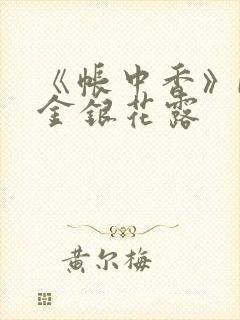 《帐中香》
金银花露
黄尔梅